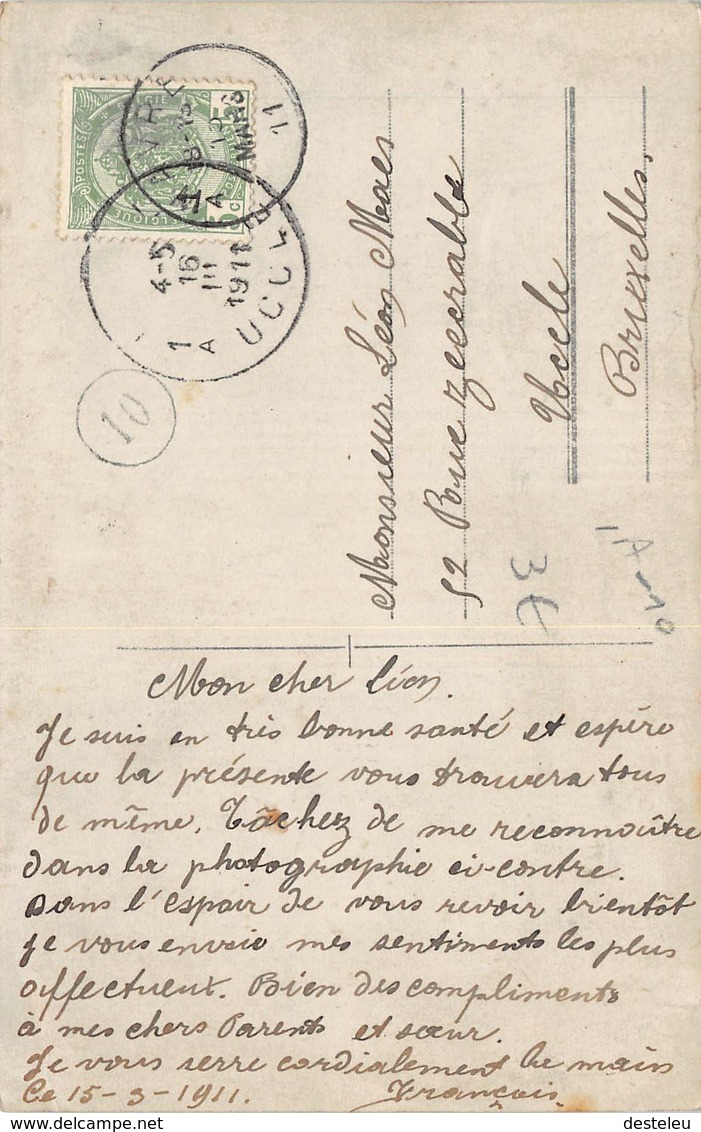 POSTES
4-5
16
III
1911
1
A
UCCLE
18-19
15
MARS
11
10
Monsieur Léon Maes
52 Rue Zeecrabbe
Uccle
Bruxelles,
3€
Mon cher Léon.
Je suis en très bonne santé et espère
que la présente vous trouvera tous
de même. Tâchez de me reconnoître
dans la photographie ci-contre.
Dans l'espoir de vous revoir bientôt
je vous envoie mes sentiments les plus
affectueux. Bien des compliments
à mes chers Parents et sœur.
Je vous serre cordialement la main
Ce 15-3-1911. François
desteleu